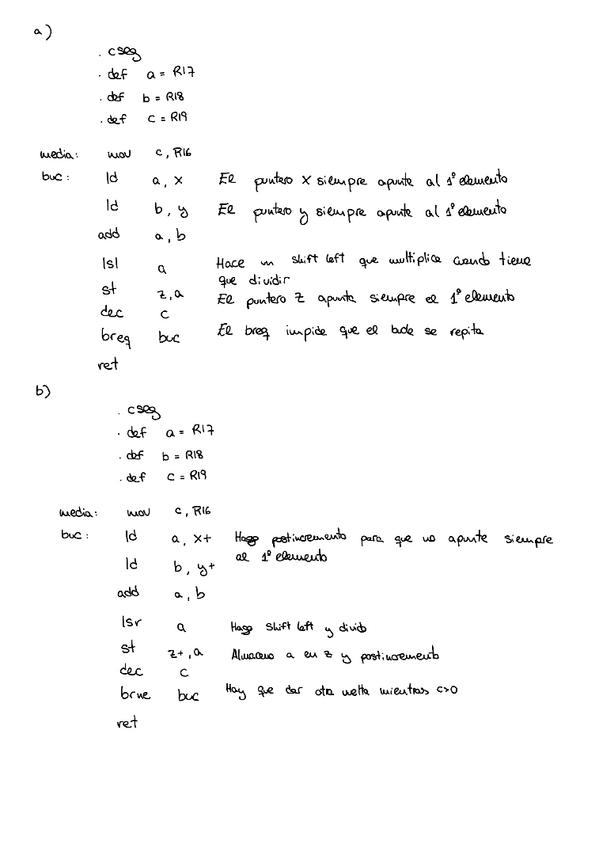 a)
. cseg
. def a = R17
. def b = R18
. def c = R19
media: mov c, R16
buc: ld a, x El puntero X siempre apunte al 1º elemento
ld b, y El puntero y siempre apunte al 1º elemento
add a, b
lsl a Hace un shift left que multiplica cuando tiene
que dividir
st z, a El puntero Z apunta siempre el 1º elemento
dec c
breq buc El breq impide que el bucle se repita
ret
b)
. cseg
. def a = R17
. def b = R18
. def c = R19
media: mov c, R16
buc: ld a, x+ Hago postincremento para que no apunte siempre
al 1º elemento
ld b, y+
add a, b
lsr a Hago shift left y divido
st z+, a Almaceno a en z y postincremento
dec c
brne buc Hay que dar otra vuelta mientras c>0
ret